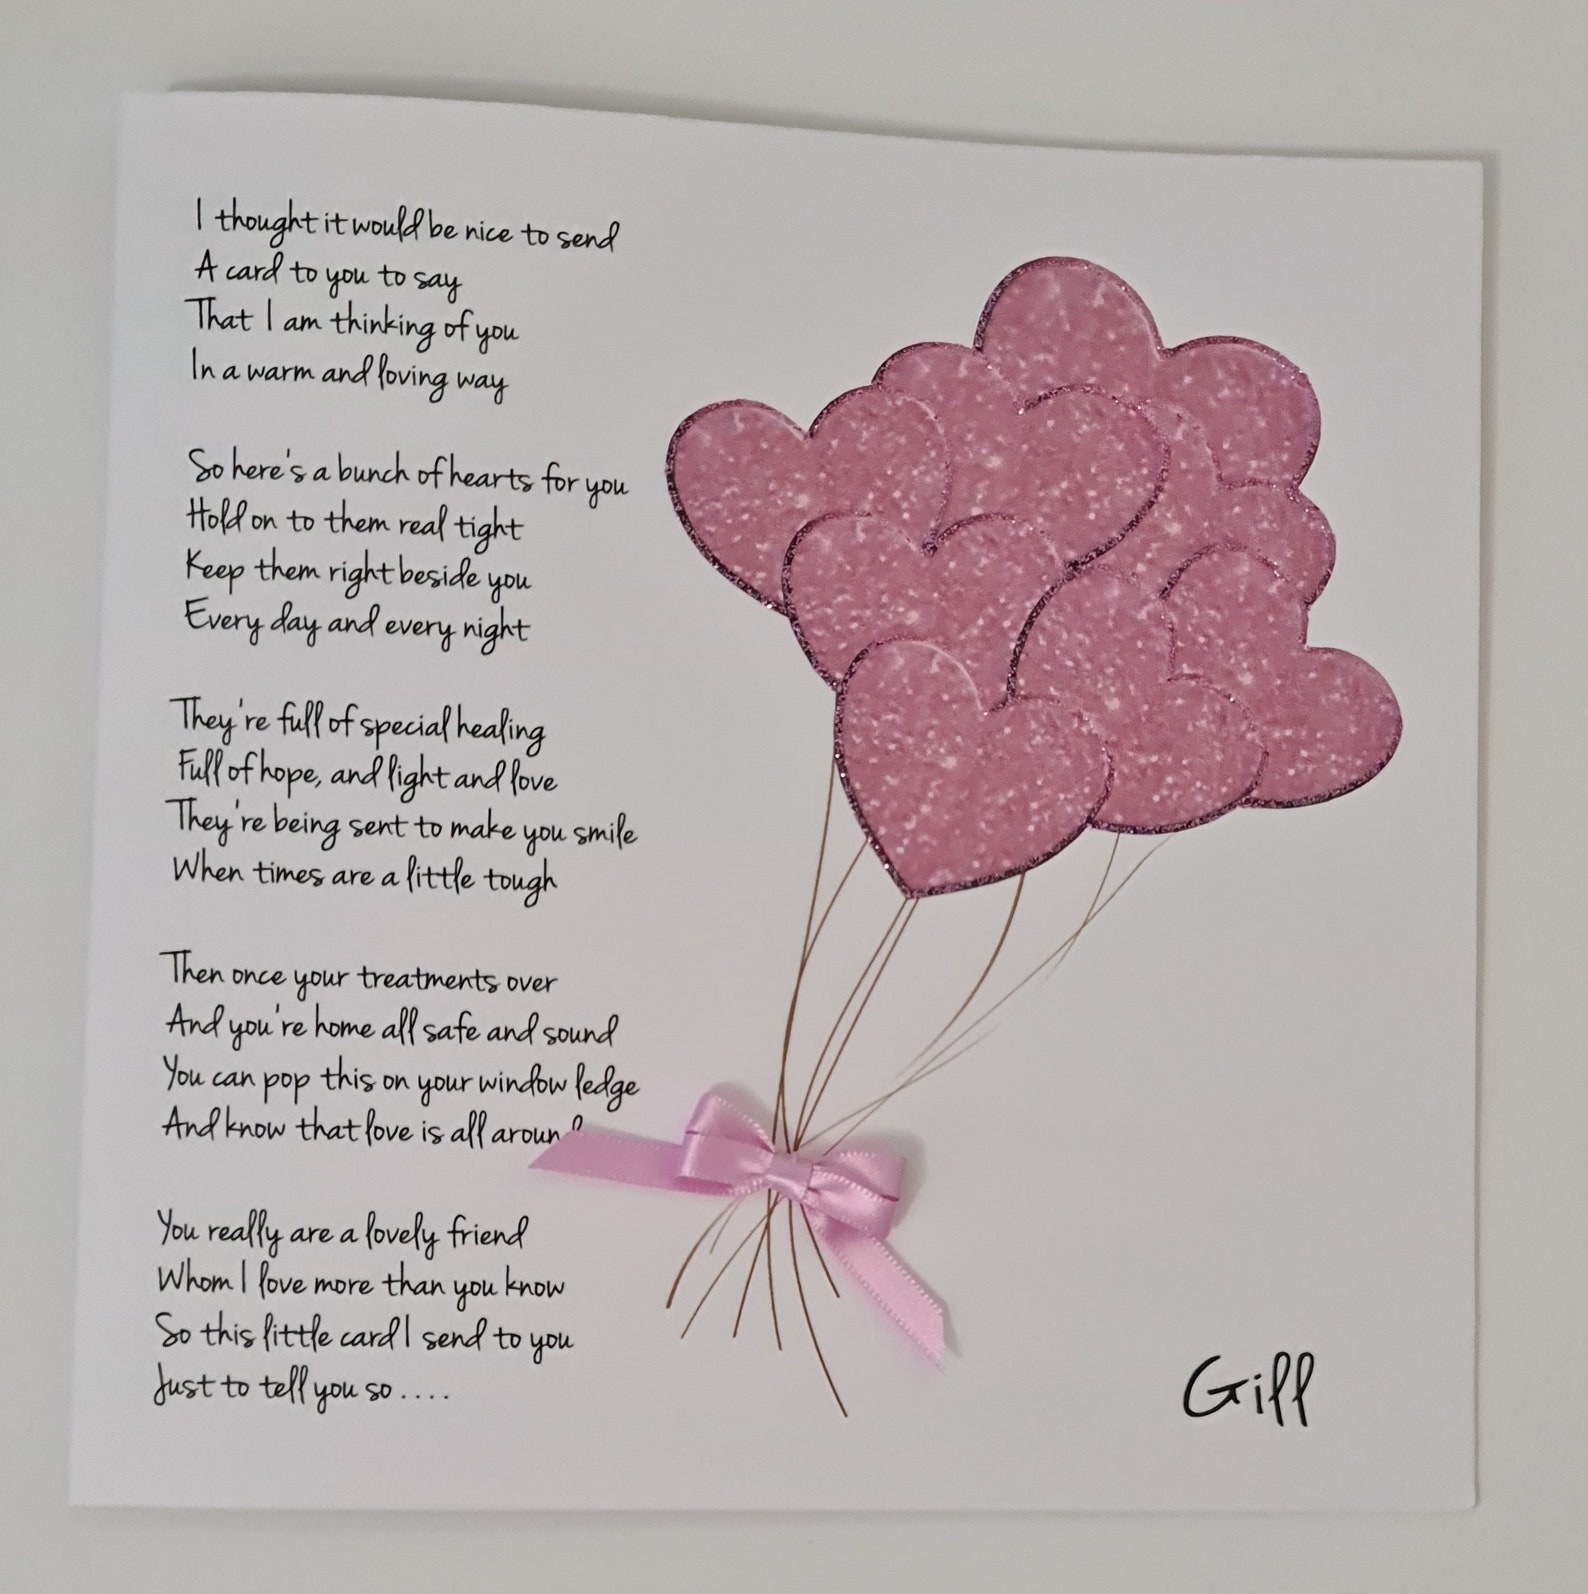 I thought it would be nice to send
A card to you to say
That I am thinking of you
In a warm and loving way
So here's a bunch of hearts for you
Hold on to them real tight
Keep them right beside you
Every day and every night
They're full of special healing
Full of hope, and light and love
They're being sent to make you smile
When times are a little tough
Then once your treatments over
And you're home all safe and sound
You can pop this on your window ledge
And know that love is all around
You really are a lovely friend
Whom I love more than you know
So this little card I send to you
Just to tell you so ....
Gill